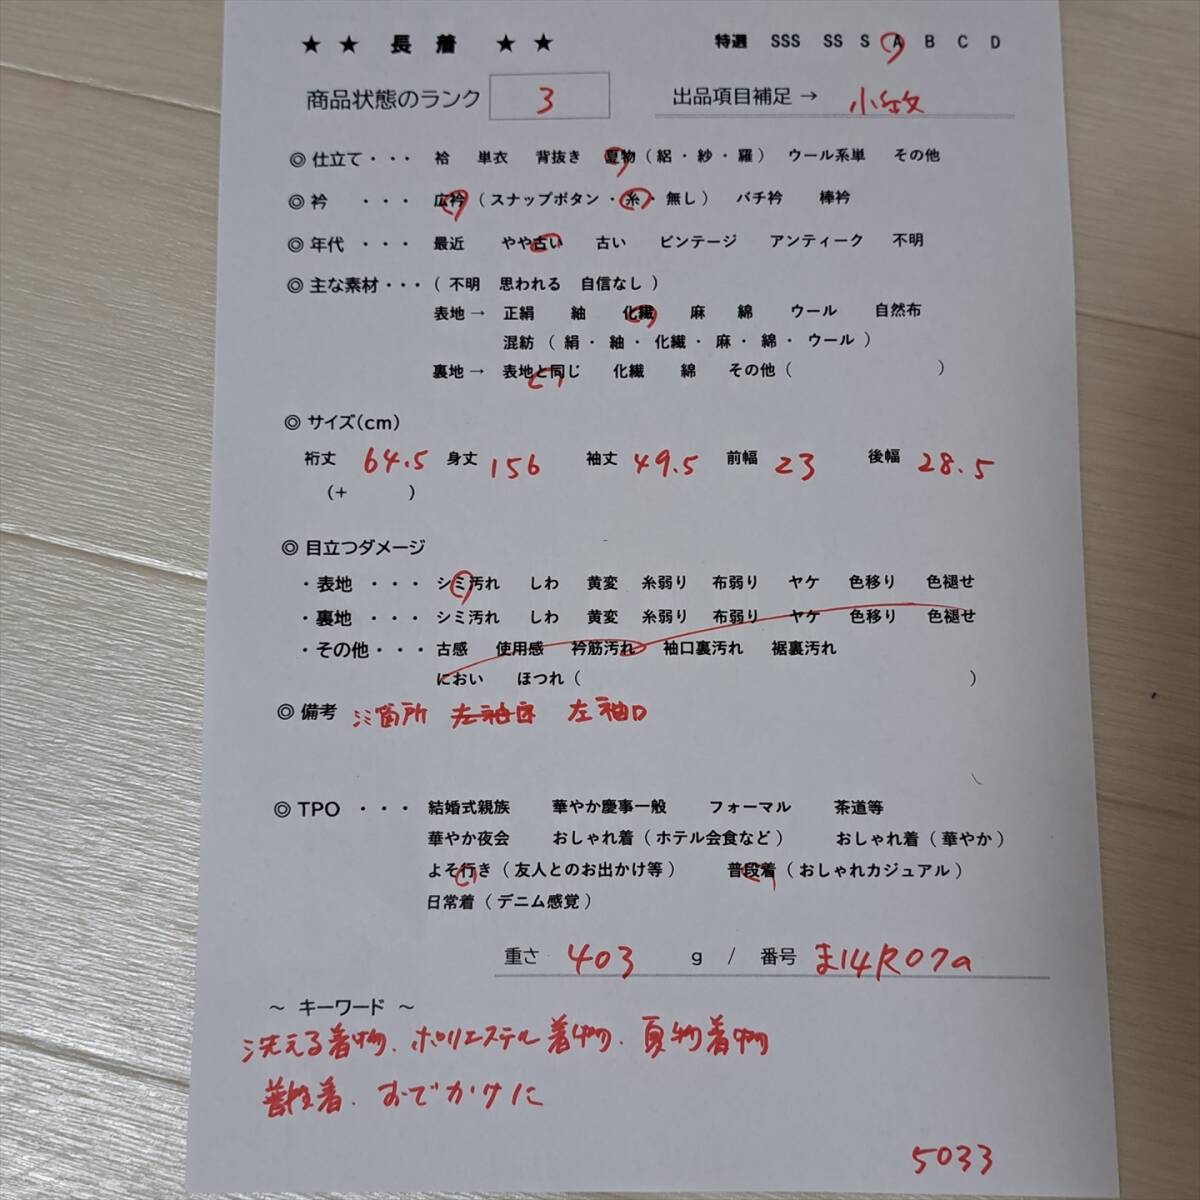 ★ ★ 長 着 ★ ★ 特選 SSS SS S A B C D
商品状態のランク 3 出品項目補足→ 小紋
◎ 仕立て・・・ 袷 単衣 背抜き 夏物 ( 絽 ・ 紗 ・ 羅 ) ウール系単 その他
◎ 衿 ・・・ 広衿 ( スナップボタン ・ 糸 ・ 無し ) バチ衿 棒衿
◎ 年代 ・・・ 最近 やや古い 古い ビンテージ アンティーク 不明
◎ 主な素材・・・ ( 不明 思われる 自信なし )
表地→ 正絹 紬 化繊 麻 綿 ウール 自然布
混紡 ( 絹 ・ 紬 ・ 化繊 ・ 麻 ・ 綿 ・ ウール )
裏地→ 表地と同じ 化繊 綿 その他 ( )
◎ サイズ(cm)
裄丈 64.5 身丈 156 袖丈 49.5 前幅 23 後幅 28.5
(+ )
◎ 目立つダメージ
・表地 ・・・ シミ汚れ しわ 黄変 糸弱り 布弱り ヤケ 色移り 色褪せ
・裏地 ・・・ シミ汚れ しわ 黄変 糸弱り 布弱り ヤケ 色移り 色褪せ
・その他・・・ 古感 使用感 衿筋汚れ 袖口裏汚れ 裾裏汚れ
におい ほつれ ( )
◎ 備考 シミ箇所 左袖口
◎ TPO ・・・ 結婚式親族 華やか慶事一般 フォーマル 茶道等
華やか夜会 おしゃれ着 ( ホテル会食など ) おしゃれ着 ( 華やか )
よそ行き ( 友人とのお出かけ等 ) 普段着 ( おしゃれカジュアル )
日常着 ( デニム感覚 )
重さ 403 g / 番号 ま14R07a
～ キーワード ～
洗える着物、ポリエステル着物、夏物着物
普段着、おでかけに
5033